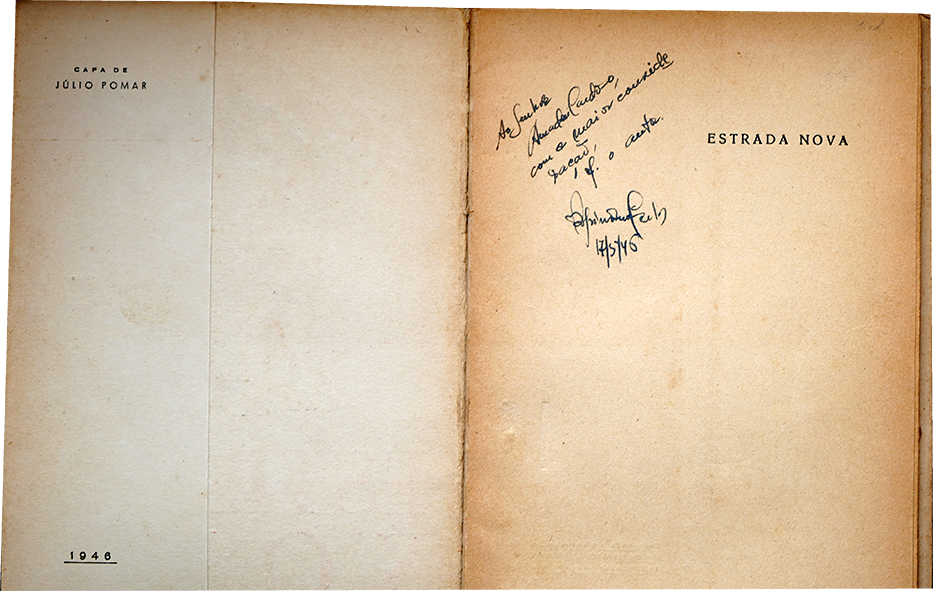 CAPA DE
JÚLIO POMAR
1946
Ao Senhor
Amadeu Cardoso,
com a maior conside
ração,
of. o autor.
17/5/46
ESTRADA NOVA